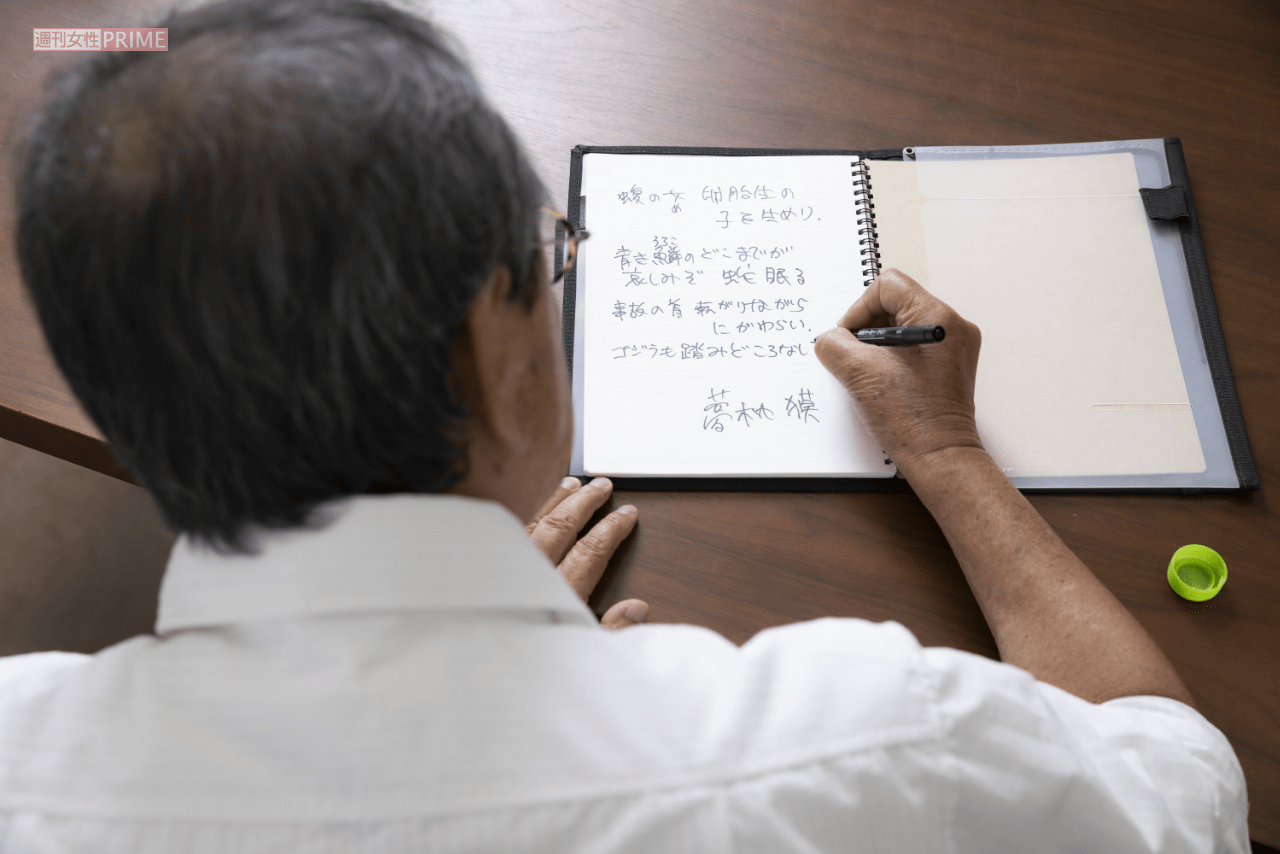 週刊女性PRIME
蝮の女 卵胎生の
め
子を生めり.
うろこ
青き鱗のどこまでが
哀しみぞ 蛇眠る
事故の首 転がりながら
にがわらい.
ゴジラも踏みどころなし
夢枕 獏